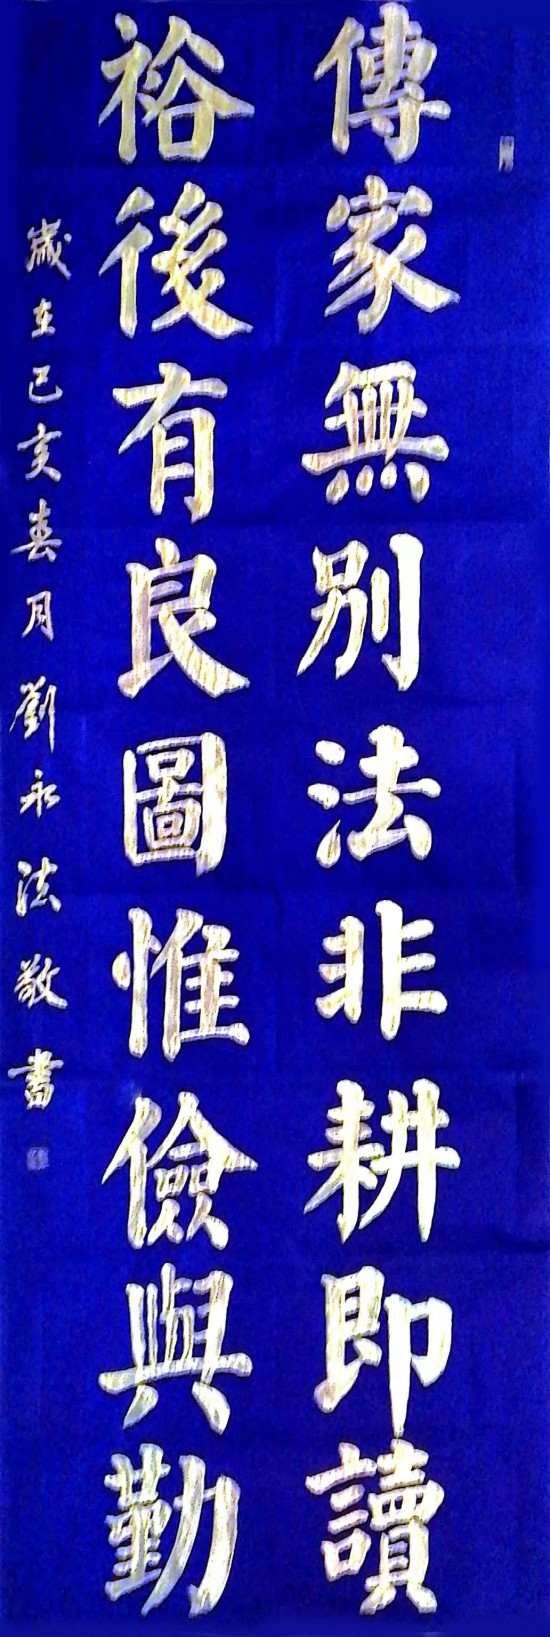 傳家無別法非耕即讀
裕後有良圖惟儉與勤
歲在己亥春月劉永法敬書